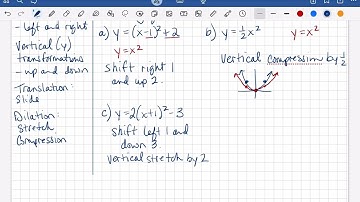 - left and right
Vertical (y)
transformations
- up and down
Translation:
Slide
Dilation:
Stretch
Compression
a) y=(x-1)²+2
y=x²
shift right 1
and up 2.
b) y=½x²
y=x²
Vertical compression by ½
c) y=2(x+1)²-3
shift left 1 and
down 3.
vertical stretch by 2